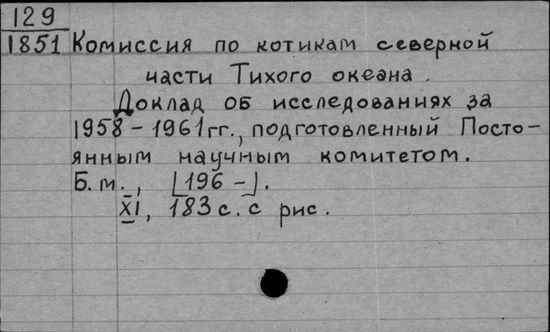 129
1851 Комиссия по котикам северной
части Тихого океана.
Доклад об исследованиях за
1958-1961гг., подготовленный Посто-
янным научным комитетом.
Б.м., [196-].
XI, 183с. с рис.